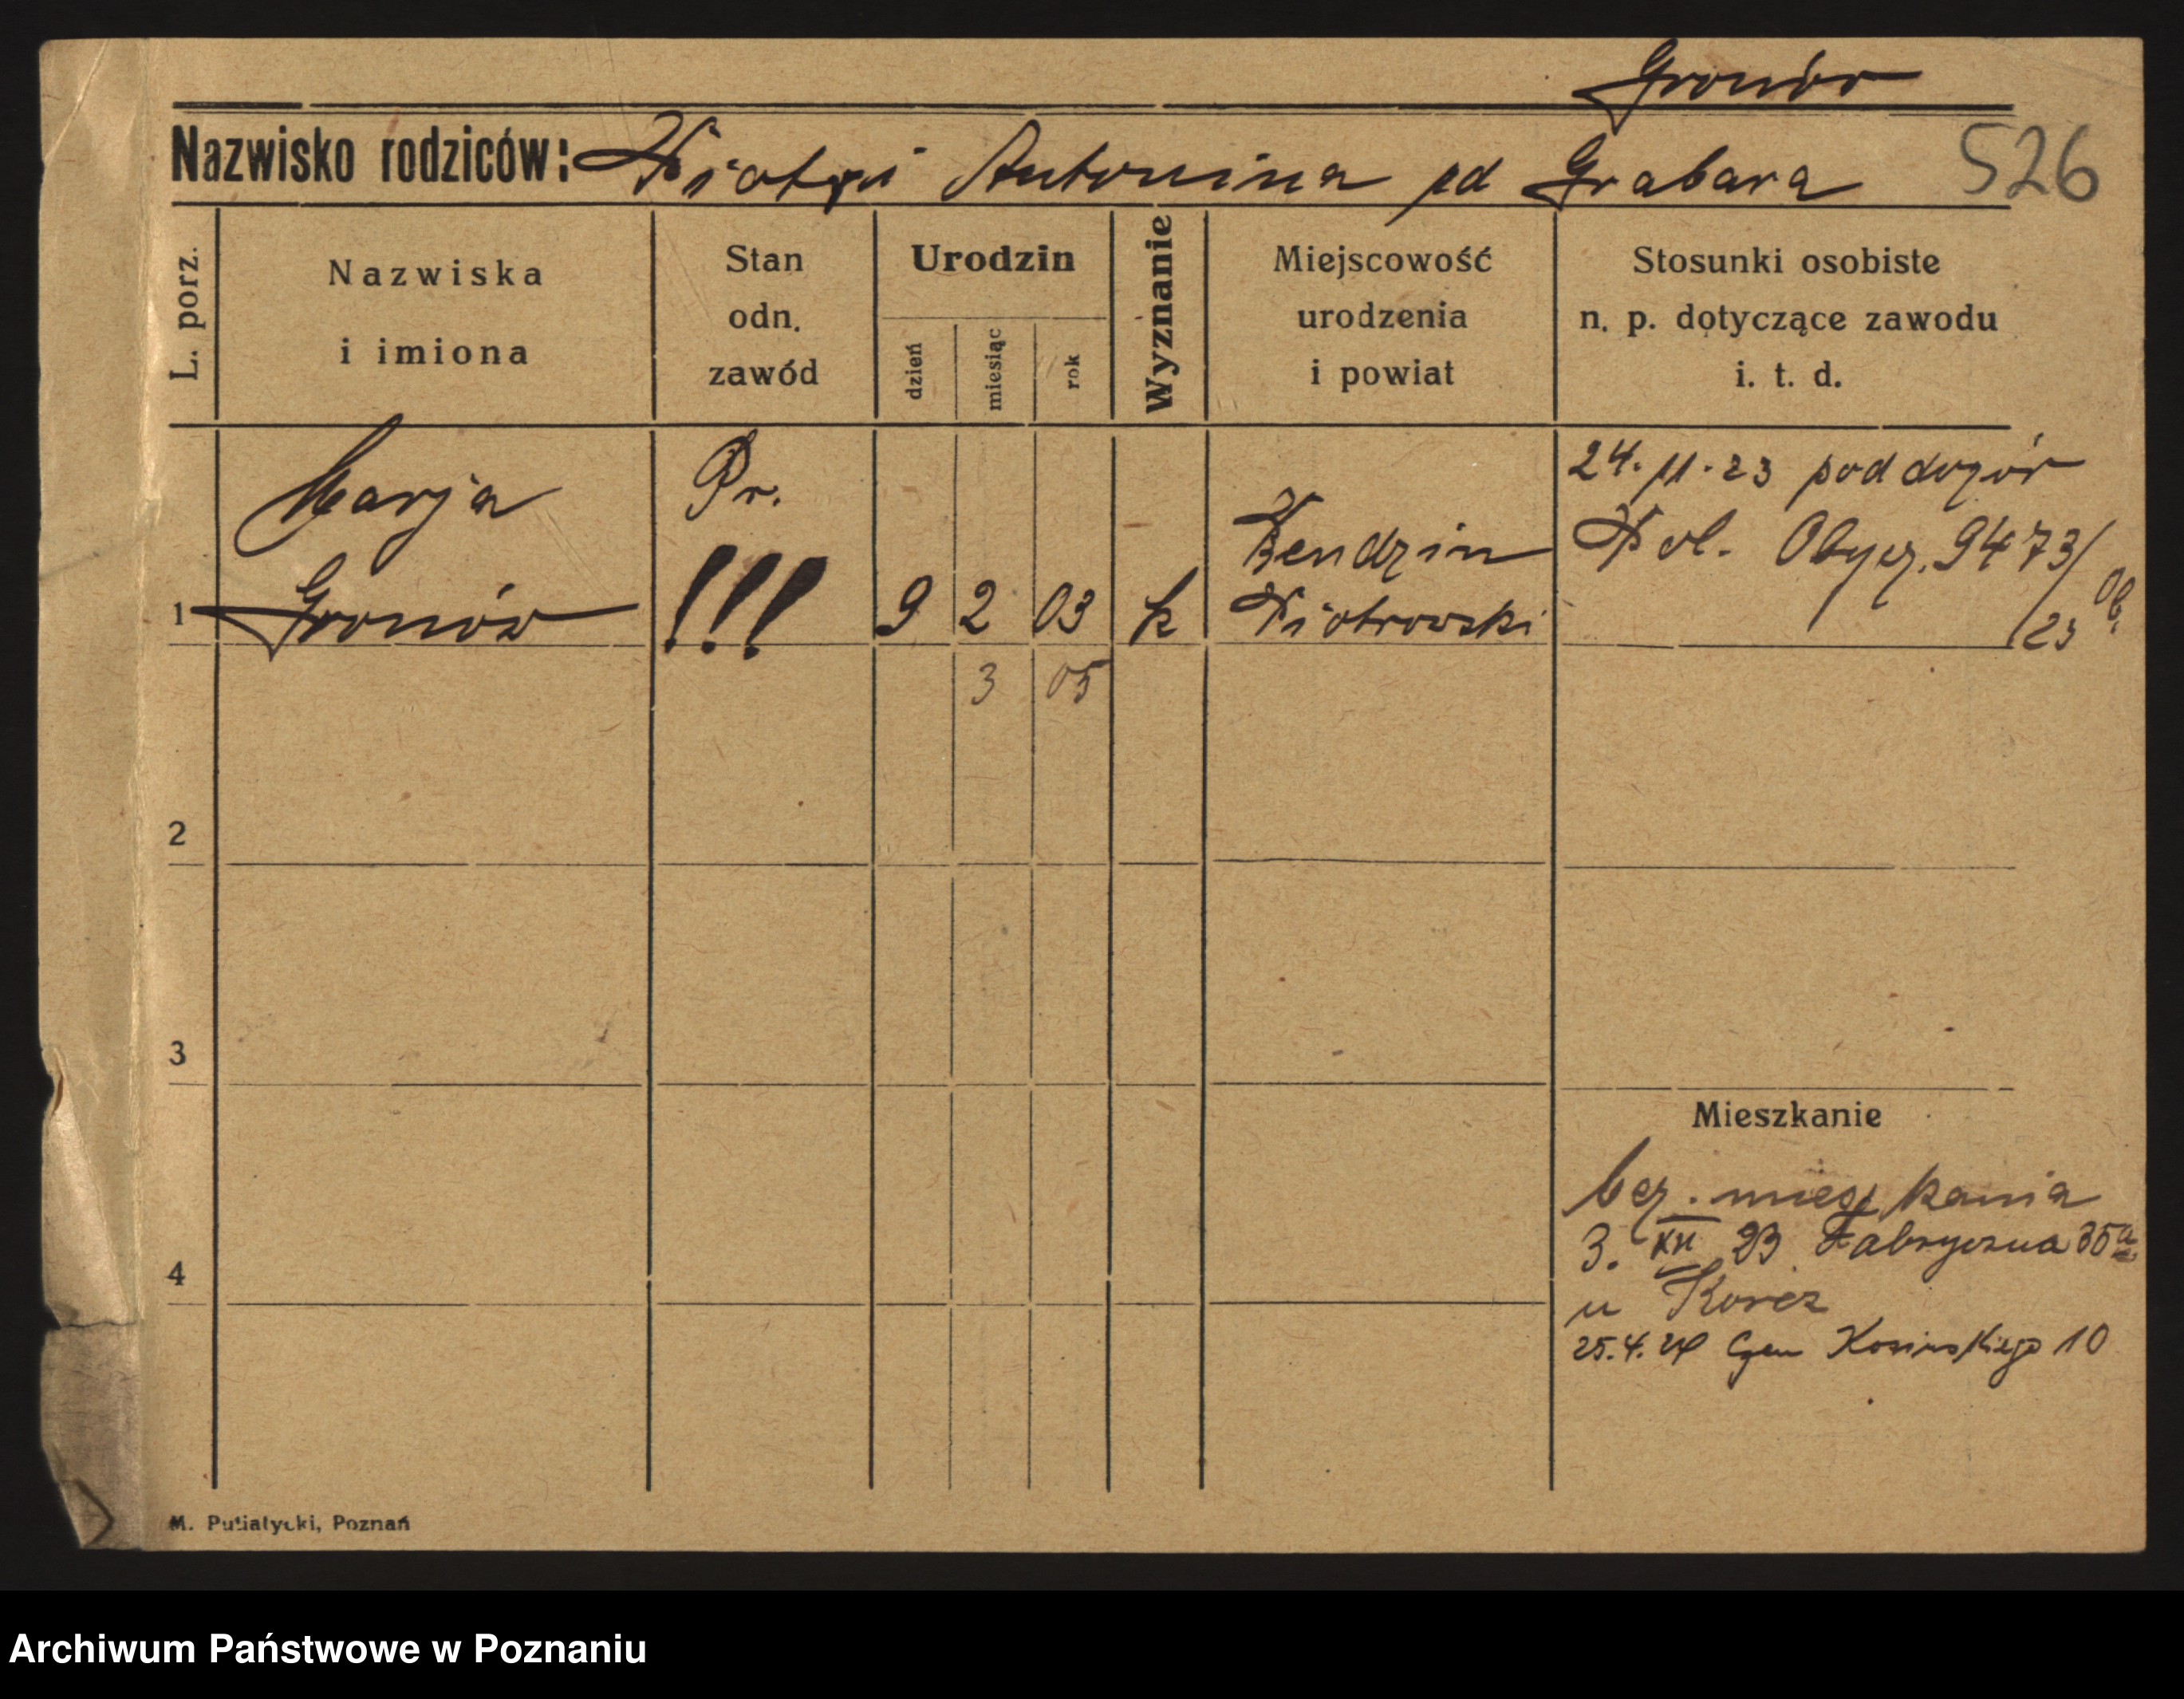 Gronów
Nazwisko rodziców: Piotr i Antonina zd Grabara 526
L. porz.
Nazwiska
i imiona
Stan
odn.
zawód
Urodzin
dzień
miesiąc
rok
Wyznanie
Miejscowość
urodzenia
i powiat
Stosunki osobiste
n. p. dotyczące zawodu
i. t. d.
1
Marja
Gronów
Pr.
!!!
9 2 03 k
3 05
Bendzin
Piotrowski
24.11.23 pod dozór
Pol. Obycz. 9473/
/23 Ob.
2
3
Mieszkanie
bez mieszkania
3. XII 23 Fabryczna 35a
u
25.4.24 Kosińskiego 10
4
M. Putiatycki, Poznań
Archiwum Państwowe w Poznaniu